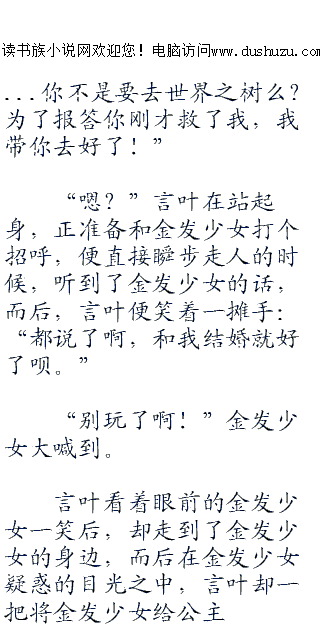 读书族小说网欢迎您！电脑访问www.dushuzu.com
...你不是要去世界之树么？
为了报答你刚才救了我，我
带你去好了！”
“嗯？”言叶在站起
身，正准备和金发少女打个
招呼，便直接瞬步走人的时
候，听到了金发少女的话，
而后，言叶便笑着一摊手：
“都说了啊，和我结婚就好
了呗。”
“别玩了啊！”金发少
女大喊到。
言叶看着眼前的金发少
女一笑后，却走到了金发少
女的身边，而后在金发少女
疑惑的目光之中，言叶却一
把将金发少女给公主